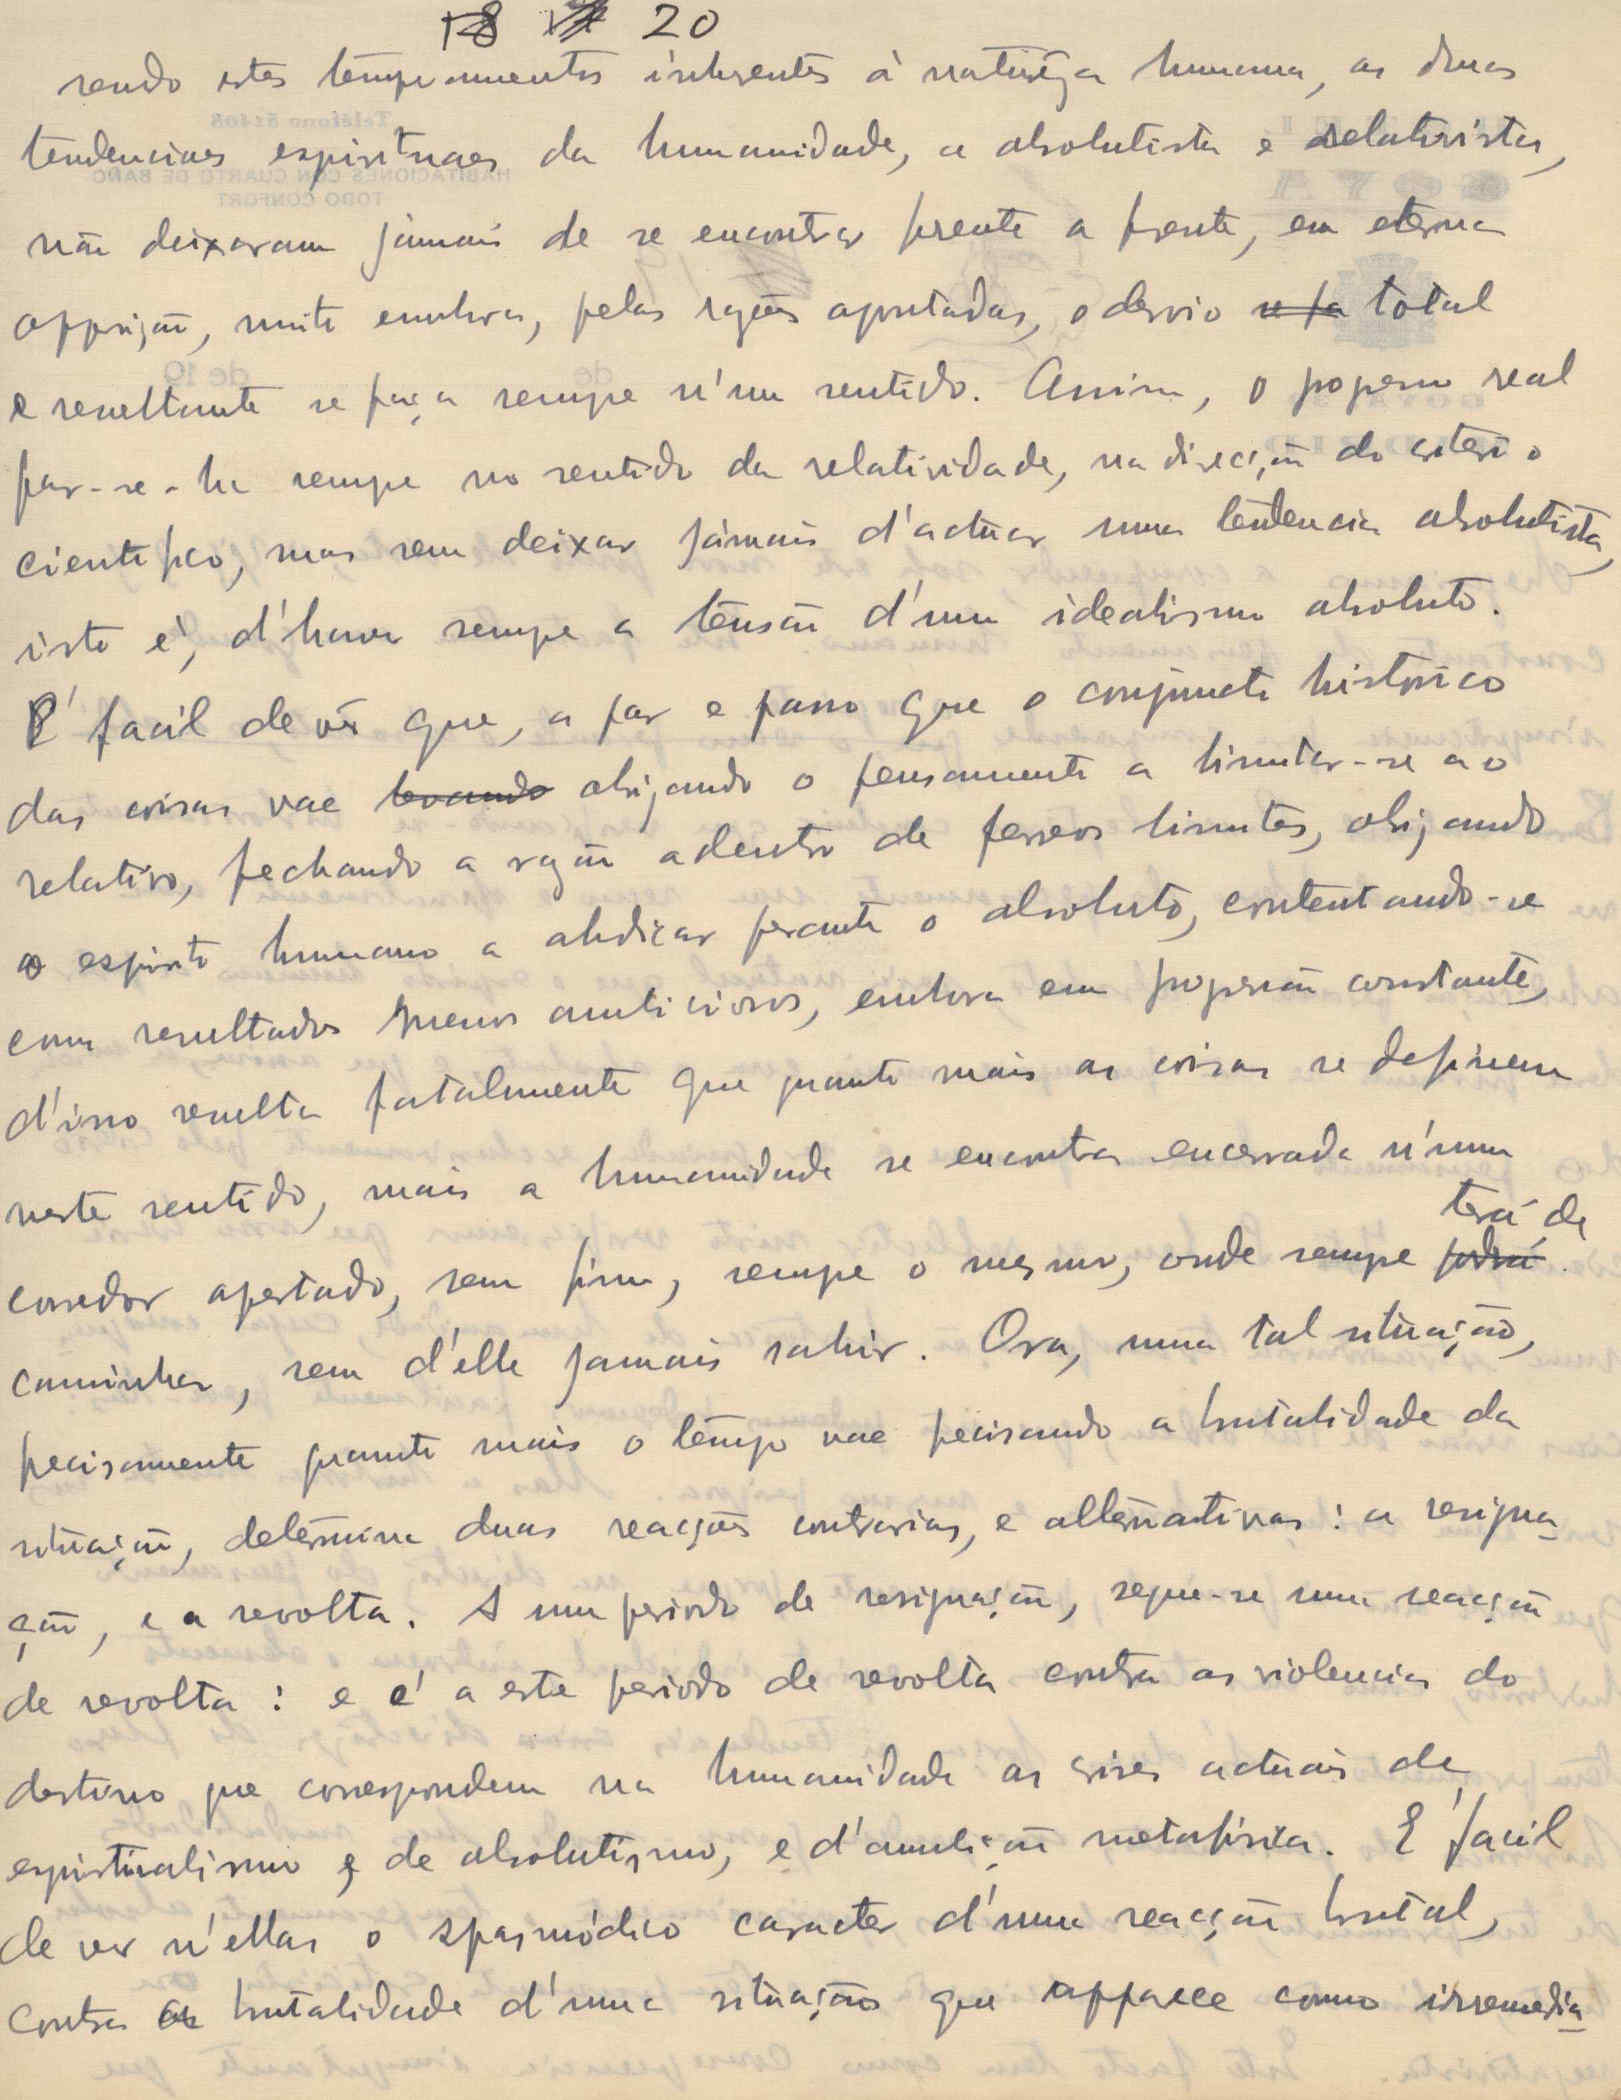 18 17 20
sendo estes temperamentos inherentes á natureza humana, as duas
tendencias espirituaes da humanidade, a absolutista e relativista,
não deixaram jámais de se encontrar frente a frente, em eterna
opposição, muito embora, pelas razões apontadas, o desvio se fa total
e resultante se faça sempre n'um sentido. Assim, o progresso real
far-se-ha sempre no sentido da relatividade, na direcção do criterio
cientifico, mas sem deixar jámais d'actuar uma tendencia absolutista,
isto é, d'haver sempre a tensão d'um idealismo absoluto.
É facil de vêr que, a par e passo que o conjuncto historico
das coisas vae levando obrigando o pensamento a limitar-se ao
relativo, fechando a razão adentro de ferreos limites, obrigando
o espirito humano a abdicar perante o absoluto, contentando-se
com resultados menos ambiciosos, embora em progressão constante,
d'isso resulta fatalmente que quanto mais as coisas se definem
neste sentido, mais a humanidade se encontra encerrada n'um
terá de
corredor apertado, sem fim, sempre o mesmo, onde sempre poderá
caminhar, sem d'elle jamais sahir. Ora, uma tal situação,
precisamente quanto mais o tempo vae precisando a brutalidade da
situação, determina duas reacções contrarias, e alternativas: a resigna-
ção, e a revolta. A um periodo de resignação, segue-se uma reacção
de revolta: e é a este periodo de revolta contra as violencias do
destino que correspondem na humanidade as crises actuais de
espiritualismo e de absolutismo, e d'ambição metafisica. É facil
de ver n'ellas o spasmódico caracter d'uma reacção brutal,
contra a brutalidade d'uma situação que apparece como irremedia-